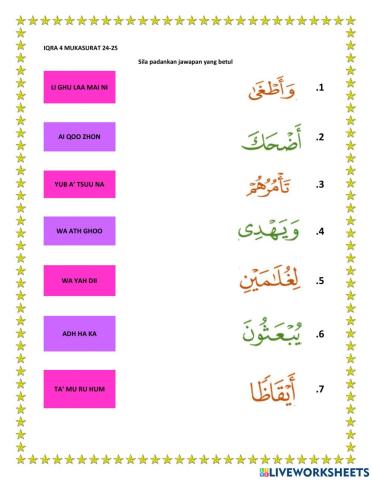 IQRA 4 MUKASURAT 24-25
Sila padankan jawapan yang betul
LI GHU LAA MAI NI
وَأَطْغَىٰ .1
AI QOO ZHON
أَضْحَكَ .2
YUB A' TSUU NA
تَأْمُرُهُمْ .3
WA ATH GHOO
وَيَهْدِى .4
WA YAH DII
لِغُلَـٰمَيْنِ .5
ADH HA KA
يُبْعَثُونَ .6
TA' MU RU HUM
أَيْقَاظًا .7
LIVEWORKSHEETS